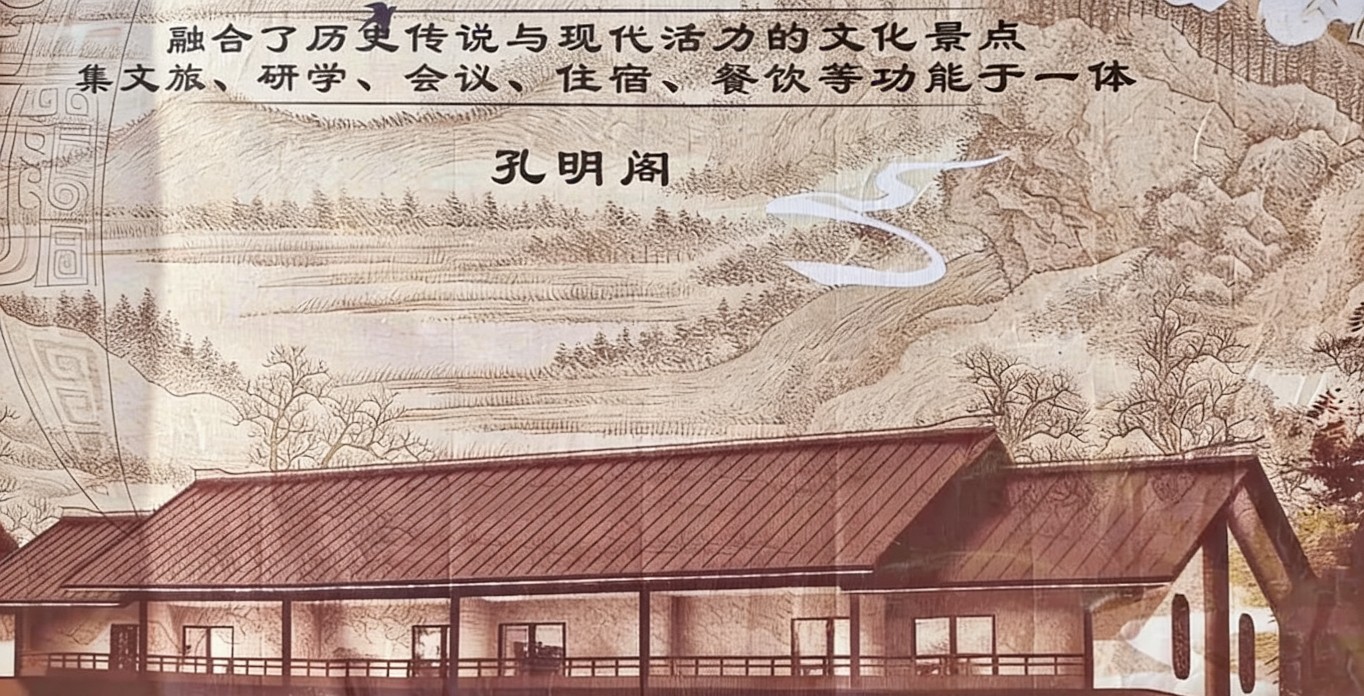 融合了历史传说与现代活力的文化景点
集文旅、研学、会议、住宿、餐饮等功能于一体
孔明阁